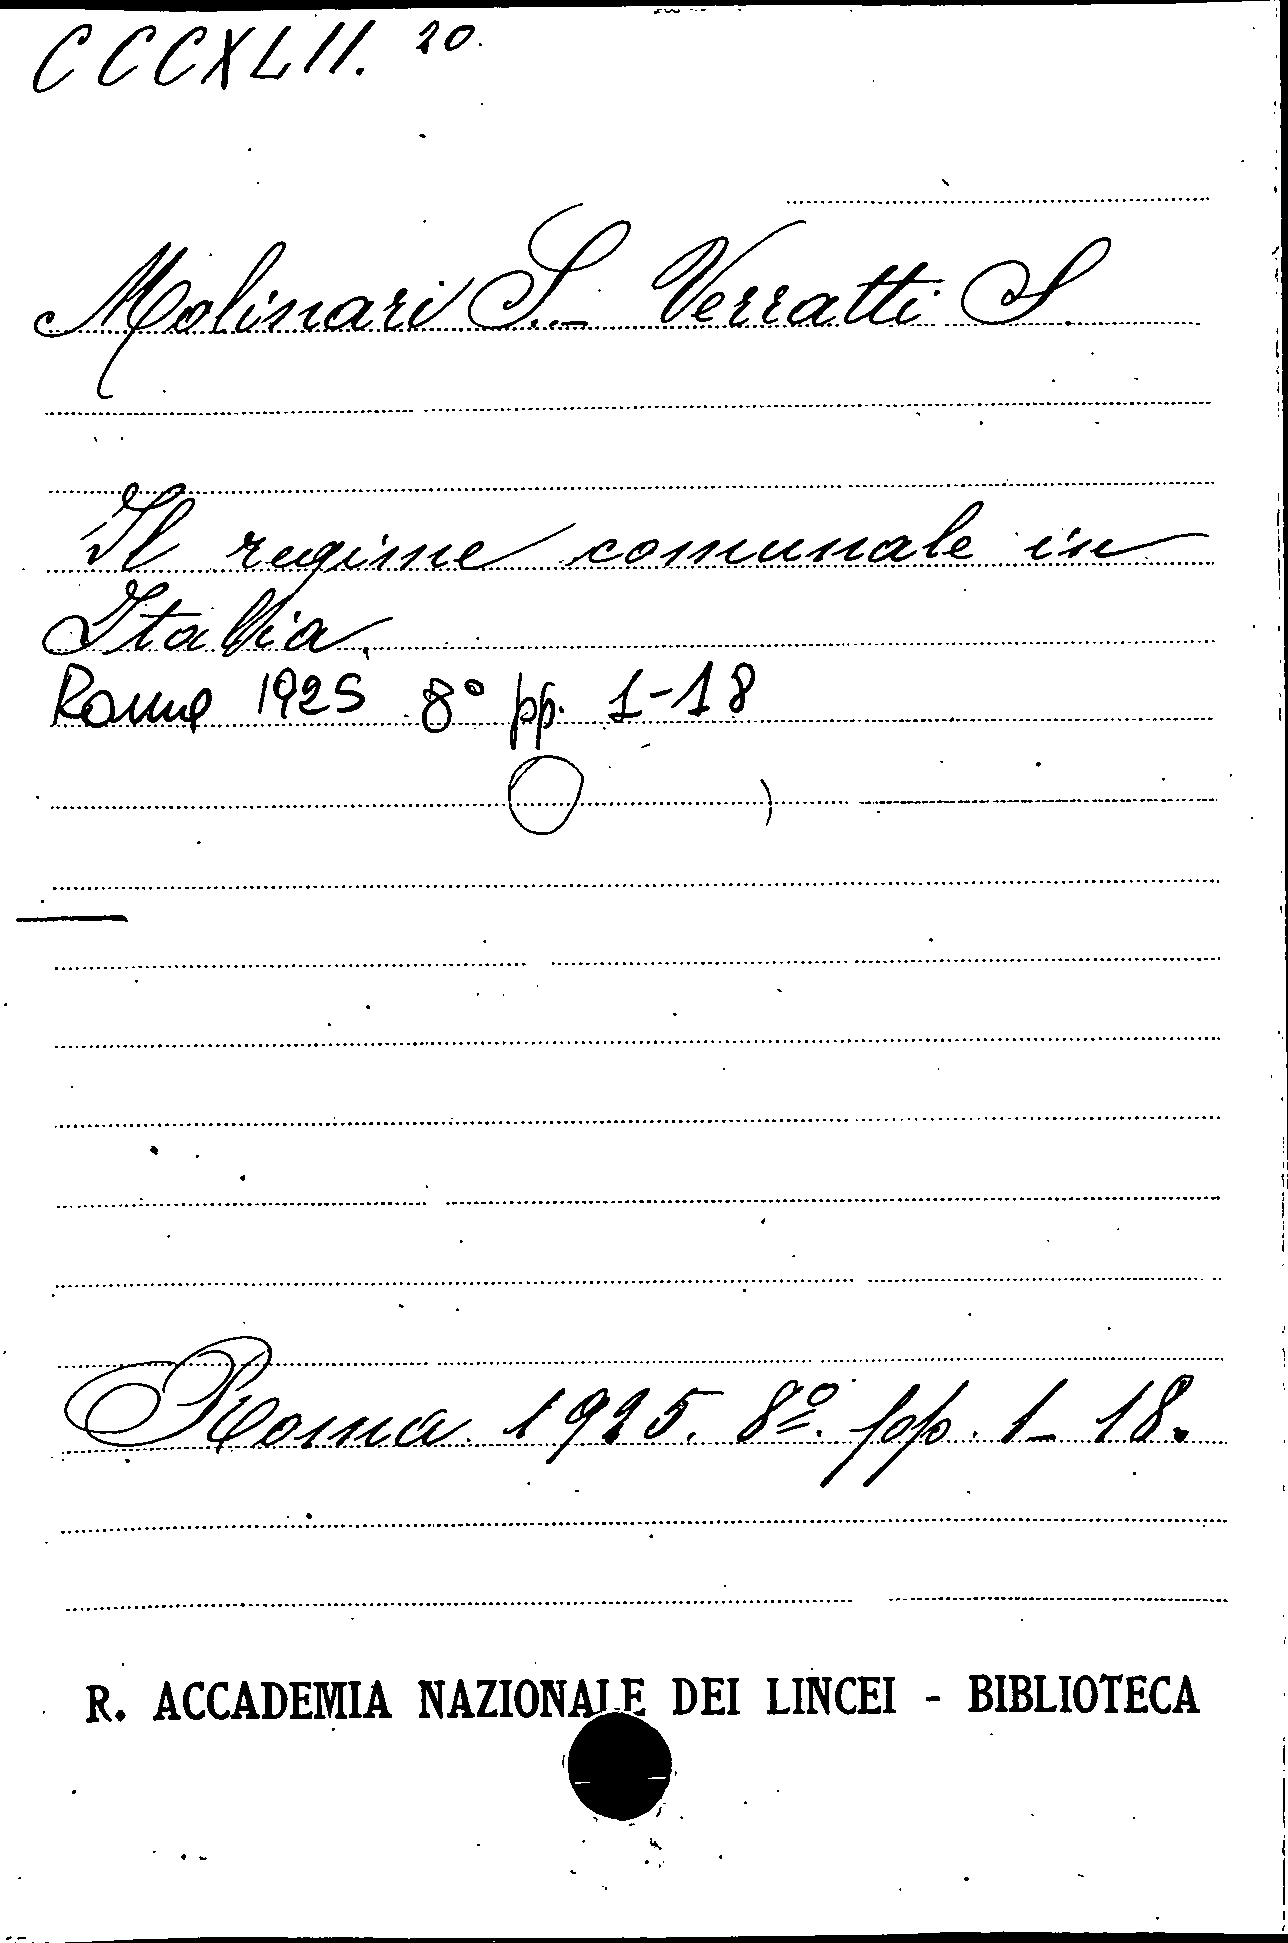 CCCXLII. 20.
Molinari S. - Verratti S.
Il regime comunale in
Italia.
Roma 1925 8° pp. 1-18
Roma. 1925. 8º. pp. 1-18.
R. ACCADEMIA NAZIONALE DEI LINCEI - BIBLIOTECA